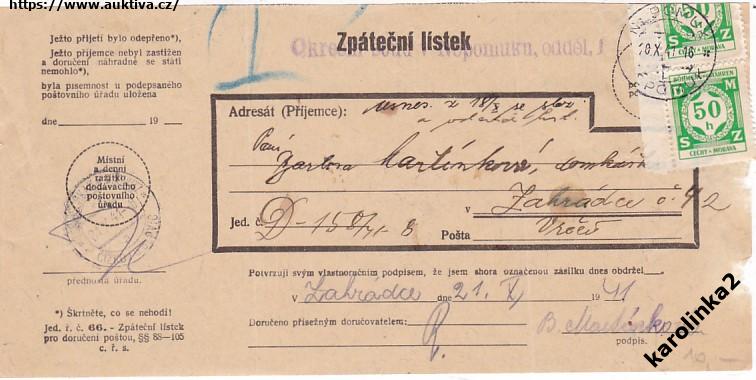 https://www.auktiva.cz/
Ježto přijetí bylo odepřeno*),
Ježto příjemce nebyl zastižen
a doručení náhradné se státi
nemohlo*),
byla písemnost u podepsaného
poštovního úřadu uložena
dne 19
Místní
a denní
razítko
dodávacího
poštovního
úřadu
přednosta úřadu.
*) Škrtněte, co se nehodí!
Jed. ř. č. 66. - Zpáteční lístek
pro doručení poštou, §§ 88—105
c. ř. s.
Zpáteční lístek
Okresní soud v Nepomuku, odděl. I
Adresát (Příjemce):
Paní
Martínková
v Zahrádce č. 42
Jed. č.
Pošta Vrčeň
Potvrzuji svým vlastnoručním podpisem, že jsem shora označenou zásilku dnes obdržel
V Zahrádce dne 21. X 1941
Doručeno přísežným doručovatelem:
B. Martínko
podpis.
BÖHMEN MÄHREN
D M
50
h
S Z
ČECHY A MORAVA
S Z
karolinka2
10,—